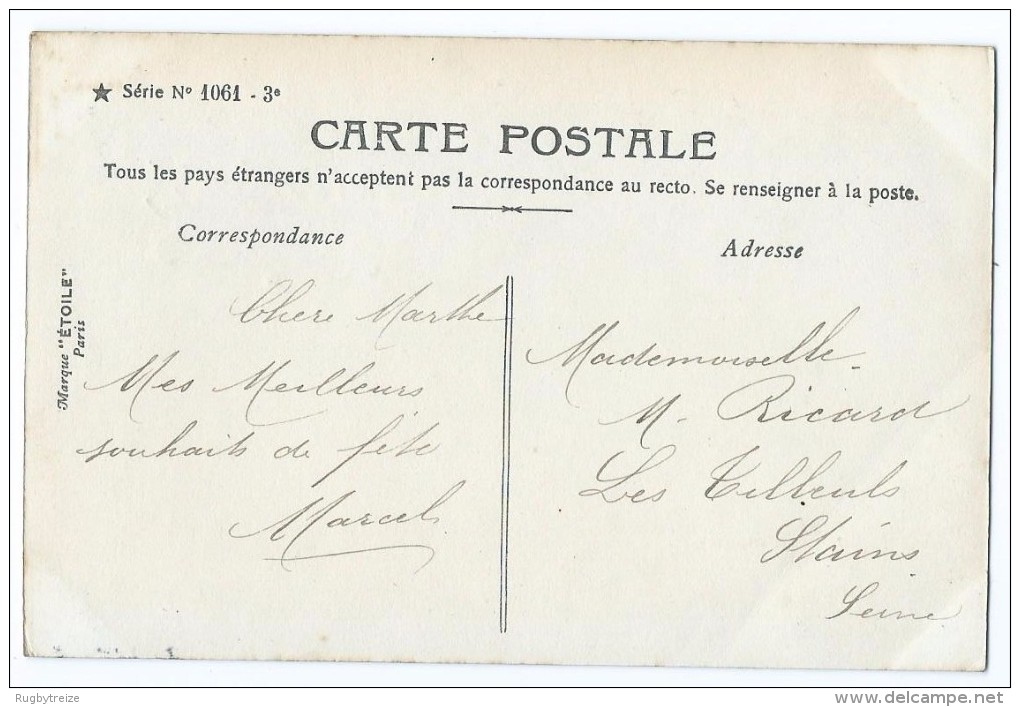 ★ Série Nº 1061 - 3e
CARTE POSTALE
Tous les pays étrangers n'acceptent pas la correspondance au recto. Se renseigner à la poste.
Correspondance
Adresse
Marque "ÉTOILE"
Paris
Chere Marthe
Mes Meilleurs
souhaits de fête
Marcel
Mademoiselle
M. Ricard
Les Tilleuls
Stains
Seine
Rugbytreize
www.delcampe.net